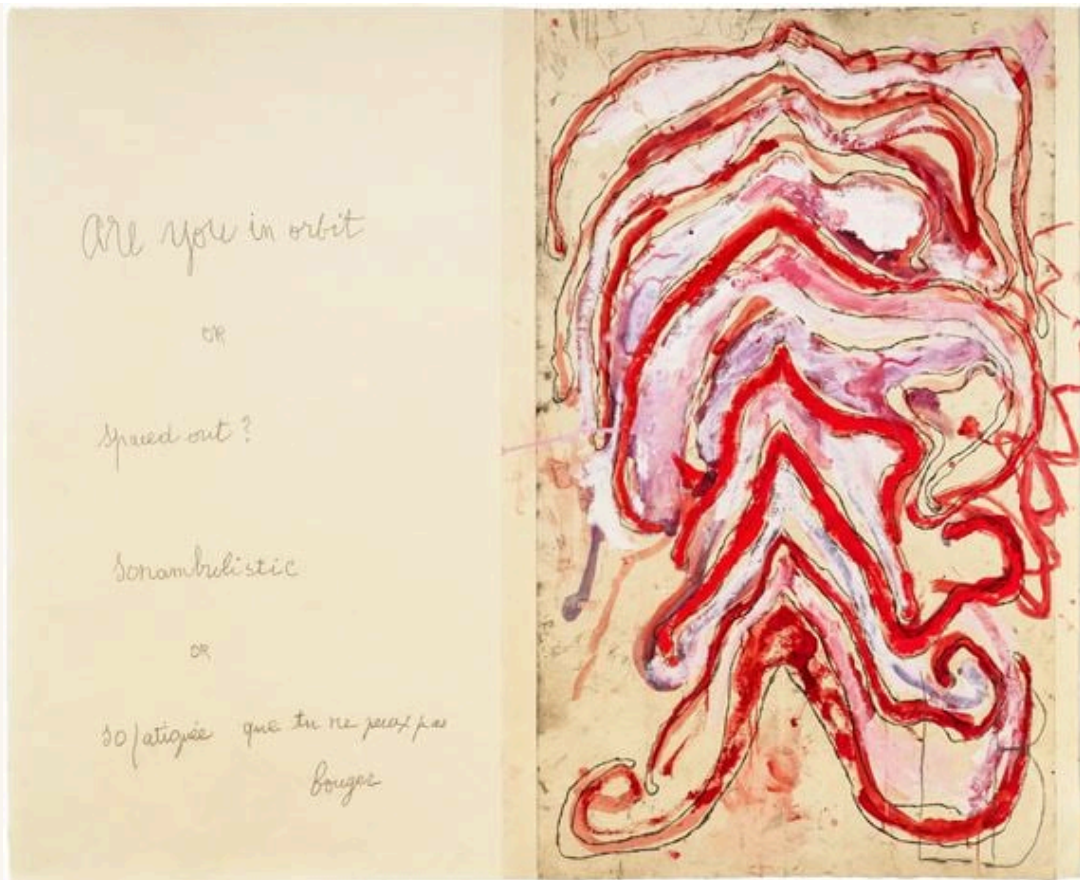 are you in orbit
OR
spaced out?
sonambulistic
OR
so fatiguée que tu ne peux pas
bouger